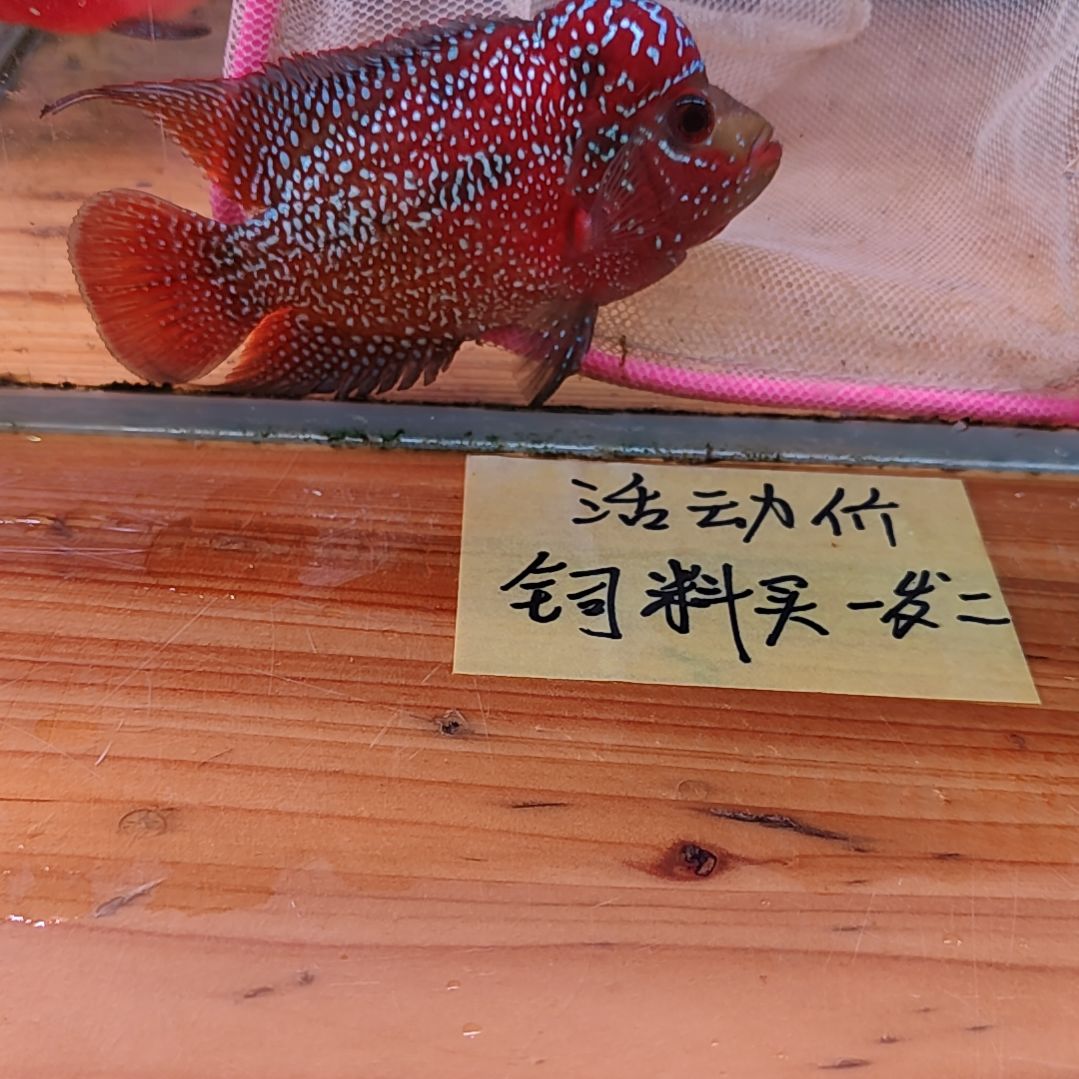 活动价
饲料买一发二